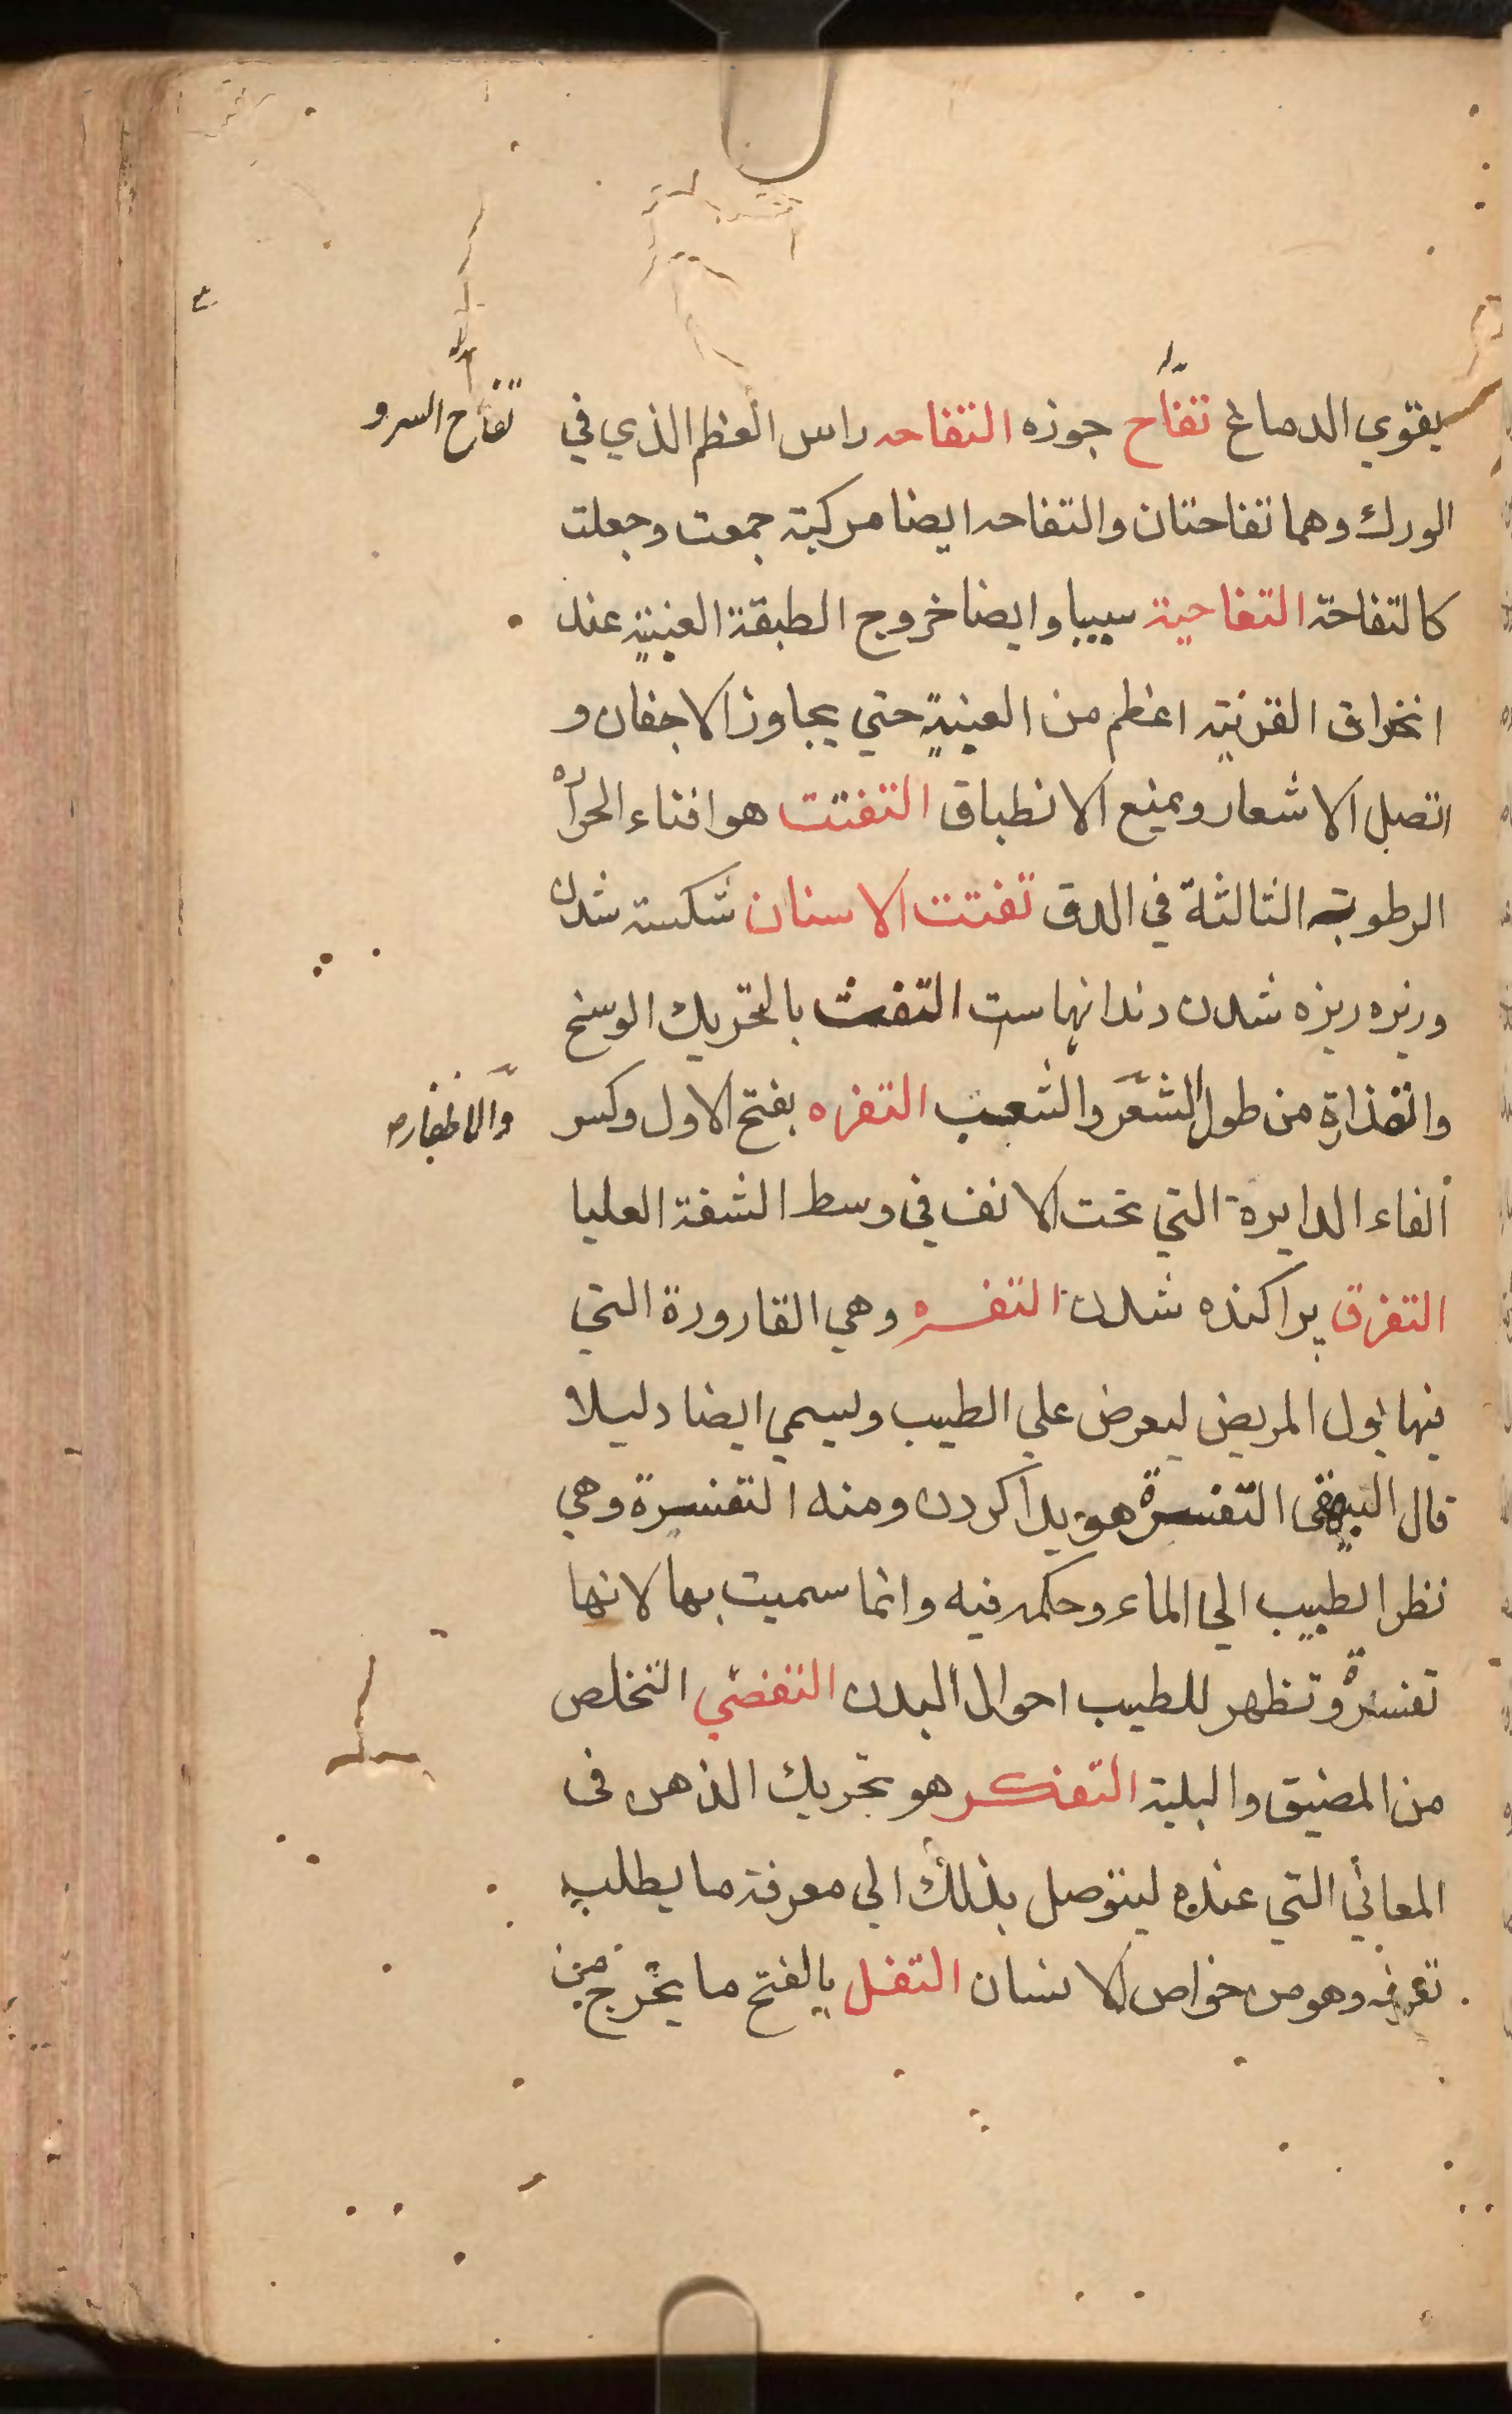 يقوي الدماغ تفاح جوزه التفاحه راس العظم الذي في
تفاح السرو
الورك وهما تفاحتان والتفاحه ايضا مركبة جمعت وجعلت
كالتفاحة التفاحية سيبيا وايضا خروج الطبقة العنبية عند
انخراق القرنية اعظم من العينية حتي يجاوز الاجفان و
اتصل الاشعار ويمنع الانطباق التفتت هو افناء الحراره
الرطوبة الثالثة في الدق تفتت الاسنان شكسته شدن
وريزه ريزه شدن دندانهاست التفث بالتحريك الوسخ
والقذارة من طول الشعر والشعب التفره بفتح الاول وكسر
والاظفاره
الفاء الدايرة التي تحت الانف في وسط الشفة العليا
التفرق پراكنده شدن التفسره وهي القارورة التي
فيها بول المريض ليعرض علي الطبيب ويسمي ايضا دليلا
قال البيهقي التفسرة هويدا كردن ومنه التفسرة وهي
نظر الطبيب الي الماء وحكمه فيه وانما سميت بها لانها
تفسرة وتظهر للطبيب احوال البدن التفصي التخلص
من المضيق والبلية التفكر هو تحريك الذهن في
المعاني التي عنده ليتوصل بذلك الي معرفة ما يطلب
تعرفه وهو من خواص الانسان التفل بالفتح ما يخرج من